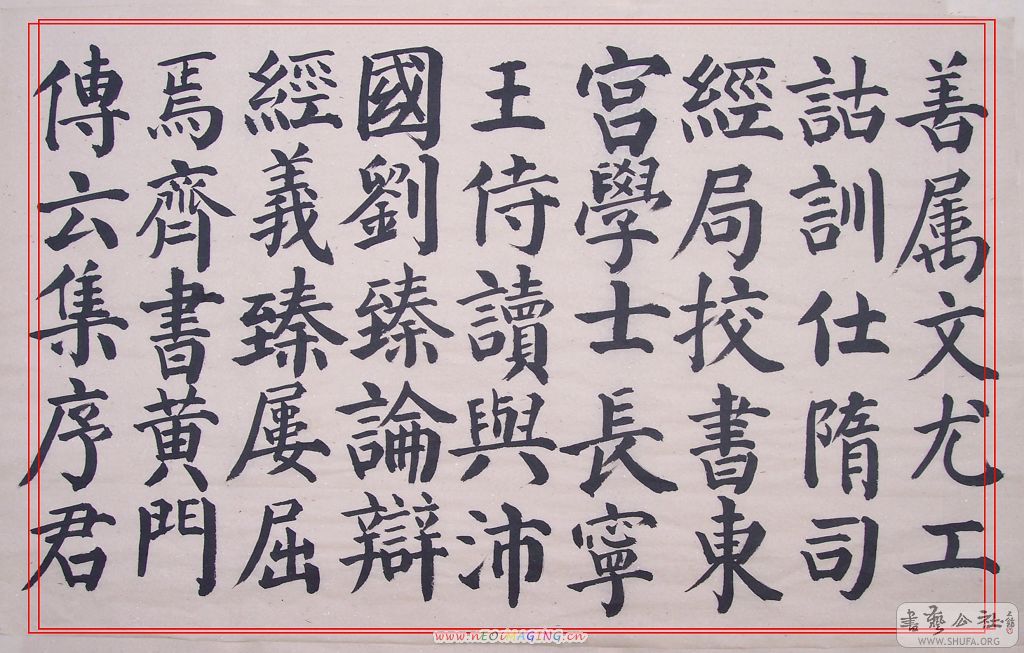 善属文尤工
詁訓仕隋司
經局挍書東
宮學士長寧
王侍讀與沛
國劉臻論辯
經義臻屢屈
焉齊書黄門
傳云集序君
書藝公社
WWW.SHUFA.ORG
www.nEOiMAGING.cn